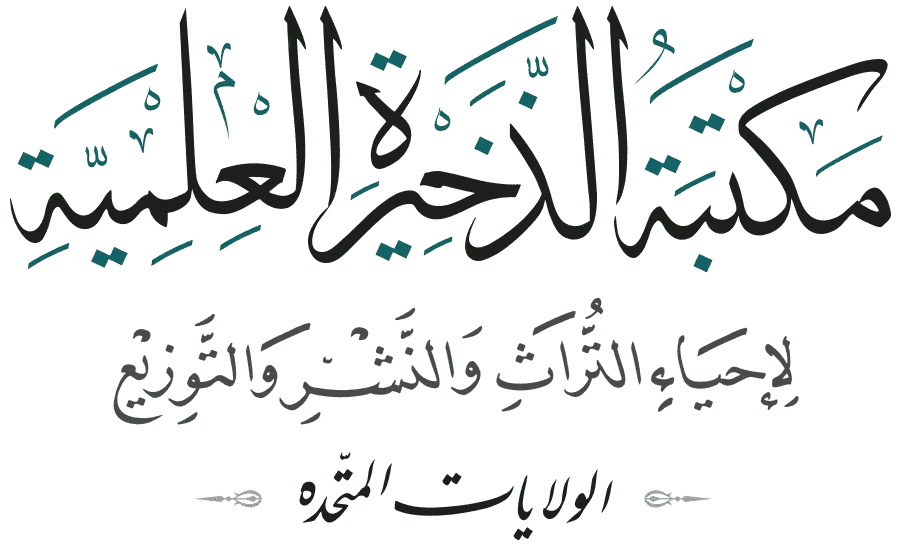 مَكْتَبَةُ الذَّخِيْرَةِ الْعِلْمِيَّةِ
لِإِحْيَاءِ التُّرَاثِ وَالنَّشْرِ وَالتَّوْزِيْعِ
الولايات المتّحده